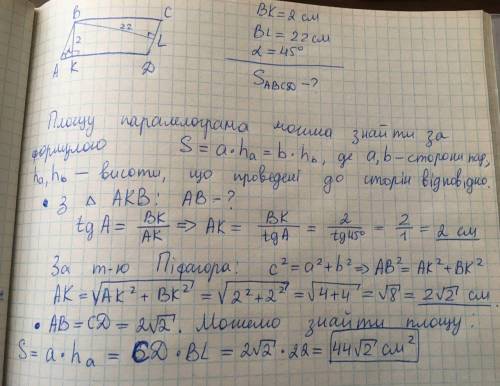 B C
22
2
L
A K D
BK = 2 см
BL = 22 см
2 = 45°
S ABCD - ?
Площу паралелограма можна знайти за
формулою S = a · ha = b · hb, де a, b - сторони пар,
ha, hb - висоти, що проведені до сторін відповідно.
• З △ AKB: AB - ?
tg A = BK/AK => AK = BK/tgA = 2/tg45° = 2/1 = 2 см
За т-ю Піфагора: c² = a² + b² => AB² = AK² + BK²
AK = √AK² + BK² = √2² + 2² = √4+4 = √8 = 2√2 см.
• AB = CD = 2√2. Можемо знайти площу:
S = a · ha = CD · BL = 2√2 · 22 = 44√2 см²